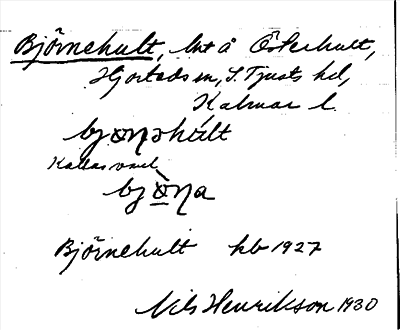 Björnehult, lht å Österhult,
Hjorteds sn, S. Tjusts hd,
Kalmar l.
bjɷ̀ŋəhúlt
Kallas
bjɷ̀ŋa
Björnehult kb 1927
Nils Henrikson 1930